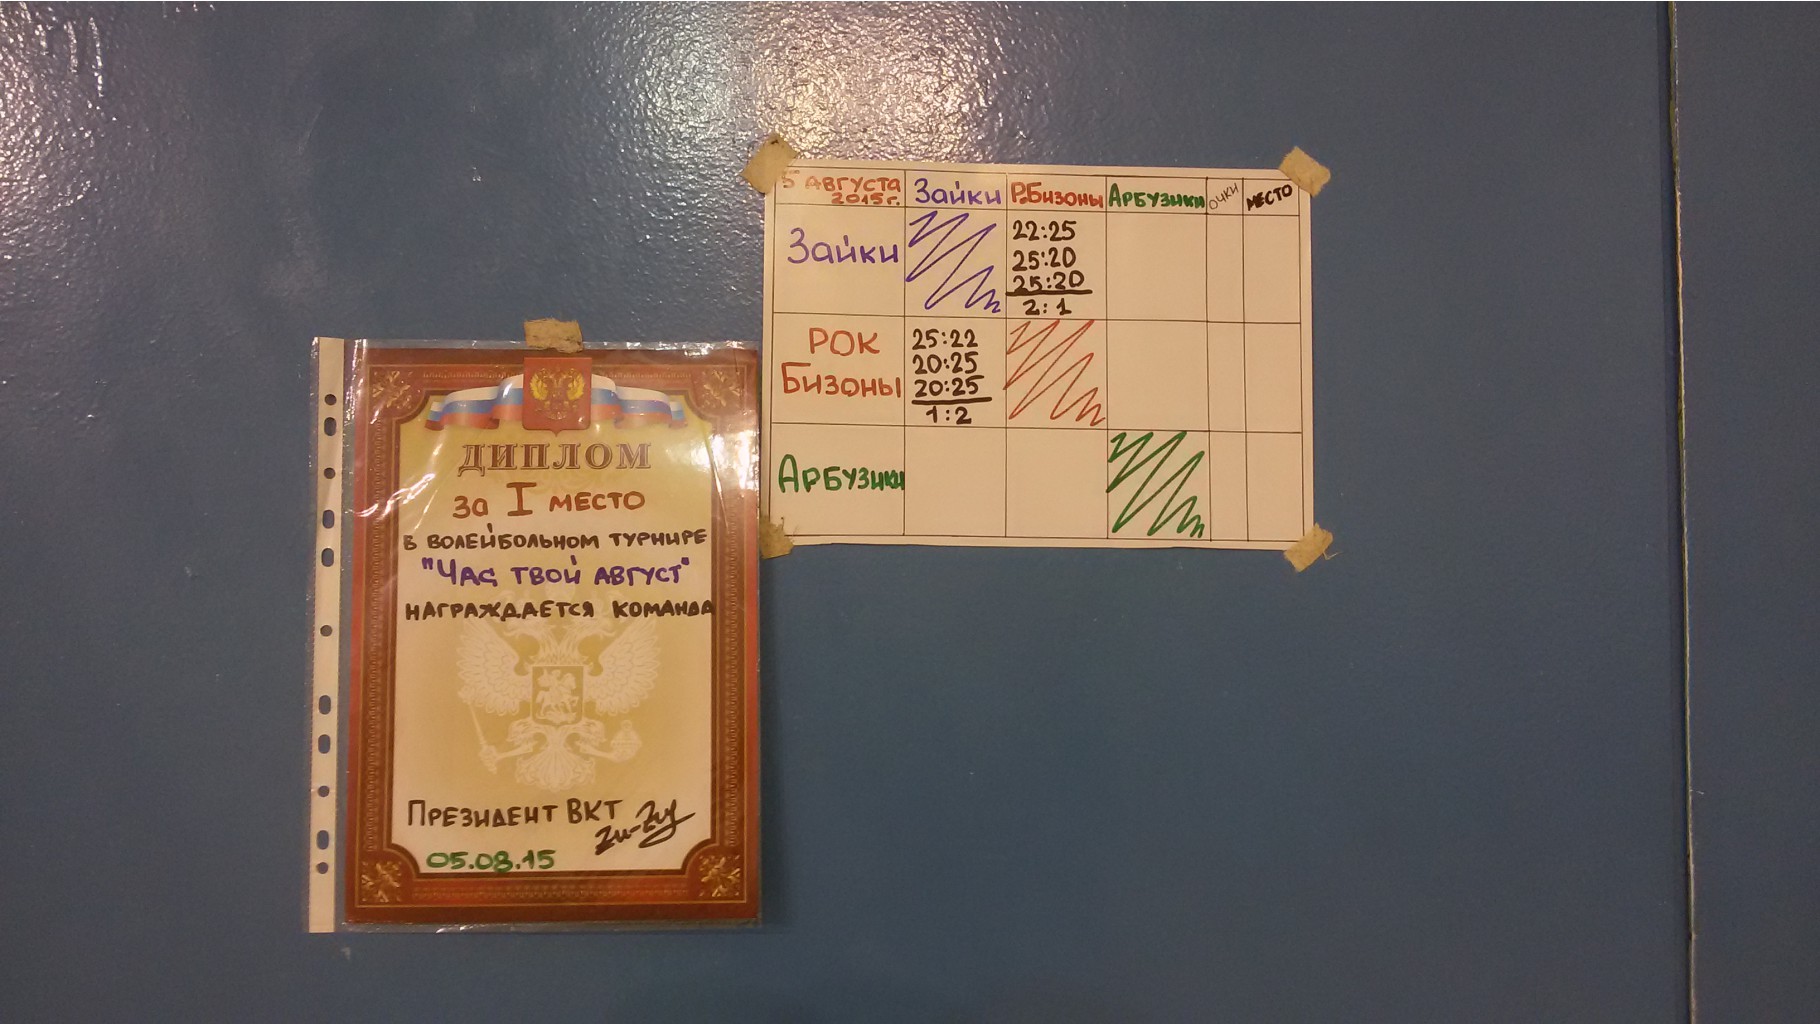 ДИПЛОМ
за I место
в волейбольном турнире
"Час твой август"
награждается команда
Президент ВКТ
05.08.15
5 Августа Зайки Р.Бизоны Арбузики очки место
2015г.
Зайки
22:25
25:20
25:20
2:1
РОК
Бизоны
25:22
20:25
20:25
1:2
Арбузики